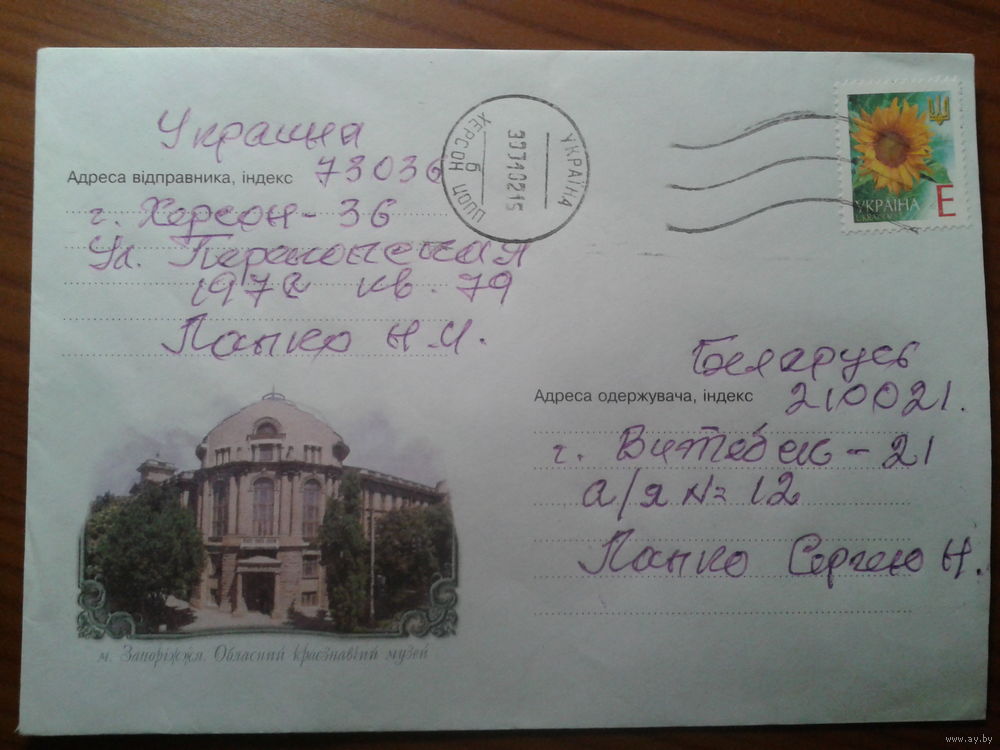 Украина
Адреса відправника, індекс 73036
г. Херсон - 36
Ул.
кв. 79
Папко Н.И.
УКРАЇНА
ХЕРСОН ЦОПП
6
УКРАЇНА
E
Беларусь
Адреса одержувача, індекс 210021.
г. Витебск - 21
а/я № 12
Папко Сергею Н.
м. Запоріжжя. Обласний краєзнавчий музей
www.ay.by